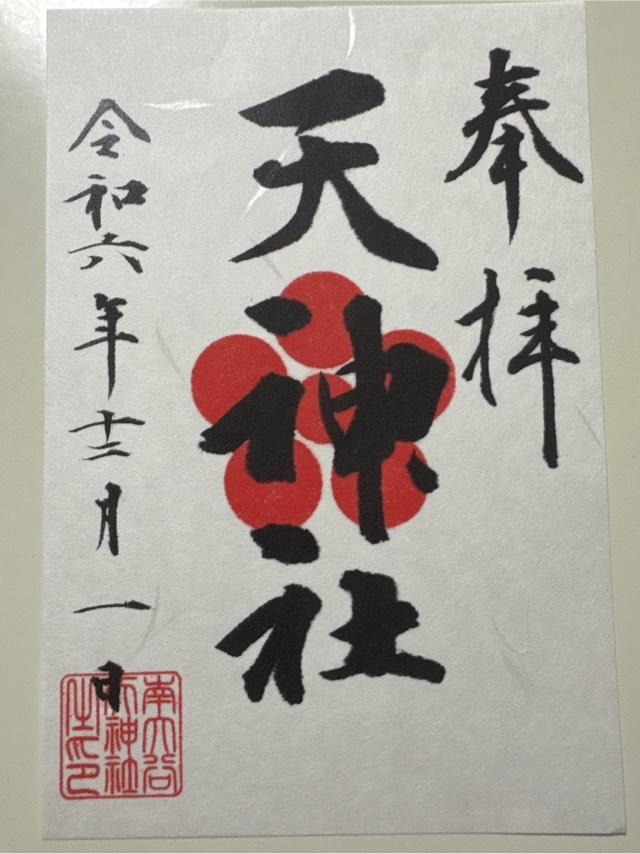 奉拝
天神社
令和六年十二月一日
南大谷
天神社
之印